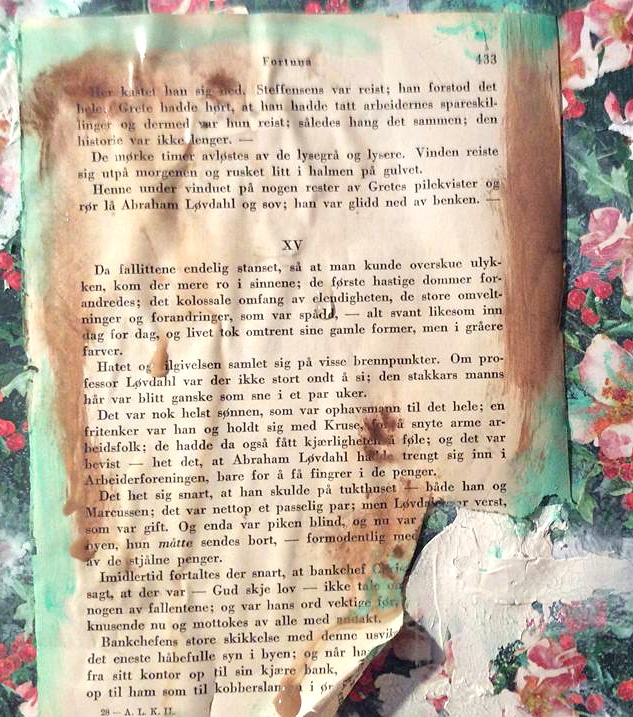 Fortuna 433
Her kastet han sig ned. Steffensens var reist; han forstod det
hele. Grete hadde hørt, at han hadde tatt arbeidernes spareskil-
linger og dermed var hun reist; således hang det sammen; den
historie var ikke lenger. —
De mørke timer avløstes av de lysegrå og lysere. Vinden reiste
sig utpå morgenen og rusket litt i halmen på gulvet.
Henne under vinduet på nogen rester av Gretes pilekvister og
rør lå Abraham Løvdahl og sov; han var glidd ned av benken. —
XV
Da fallittene endelig stanset, så at man kunde overskue ulyk-
ken, kom der mere ro i sinnene; de første hastige dommer for-
andredes; det kolossale omfang av elendigheten, de store omvelt-
ninger og forandringer, som var spådd, — alt svant likesom inn
dag for dag, og livet tok omtrent sine gamle former, men i gråere
farver.
Hatet og ilgivelsen samlet sig på visse brennpunkter. Om pro-
fessor Løvdahl var der ikke stort ondt å si; den stakkars manns
hår var blitt ganske som sne i et par uker.
Det var nok helst sønnen, som var ophavsmann til det hele; en
fritenker var han og holdt sig med Kruse, for å snyte arme ar-
beidsfolk; de hadde da også fått kjærligheten å føle; og det var
bevist — het det, at Abraham Løvdahl hadde trengt sig inn i
Arbeiderforeningen, bare for å få fingrer i de penger.
Det het sig snart, at han skulde på tukthuset — både han og
Marcussen; det var nettop et passelig par; men Løvdahl var verst,
som var gift. Og enda var piken blind, og nu var
byen, hun måtte sendes bort, — formodentlig med
av de stjålne penger.
Imidlertid fortaltes der snart, at bankchef
sagt, at der var — Gud skje lov — ikke tale om
nogen av fallentene; og var hans ord vektige før,
knusende nu og mottokes av alle med andakt.
Bankchefens store skikkelse med denne usvik-
det eneste håbefulle syn i byen; og når ha
fra sitt kontor op til sin kjære bank,
op til ham som til kobberslangen i ør
28 — A. L. K. II.